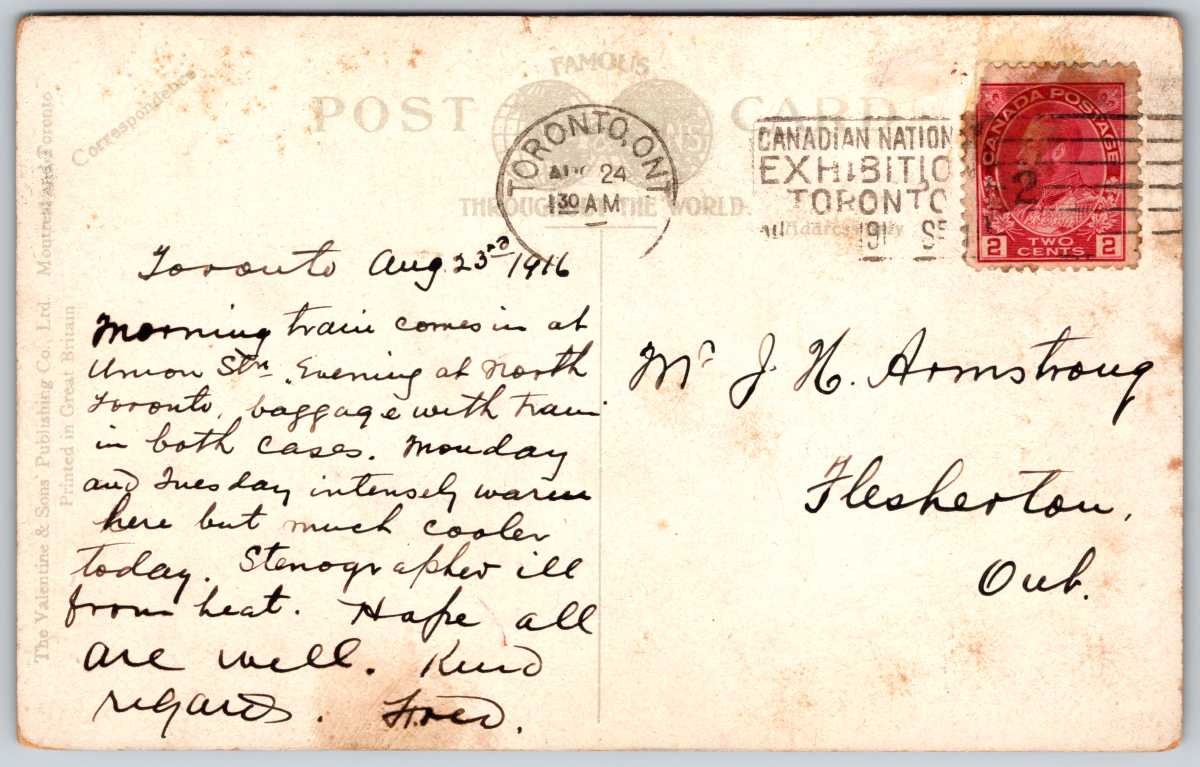 FAMOUS
POST CARD
THROUGHOUT THE WORLD
Correspondence
TORONTO, ONT
AUG 24
130 AM
CANADIAN NATION
EXHIBITIO
TORONTO
191 SE
CANADA POSTAGE
2
2 TWO CENTS 2
Toronto Aug 23rd 1916
Morning train comes in at
Union Stn. Evening at North
Toronto, baggage with train
in both cases. Monday
and Tuesday intensely warm
here but much cooler
today. Stenographer ill
from heat. Hope all
are well. Kind
regards. Fred.
Mr J. H. Armstrong
Flesherton,
Ont.
The Valentine & Sons' Publishing Co., Ltd. Montreal and Toronto
Printed in Great Britain